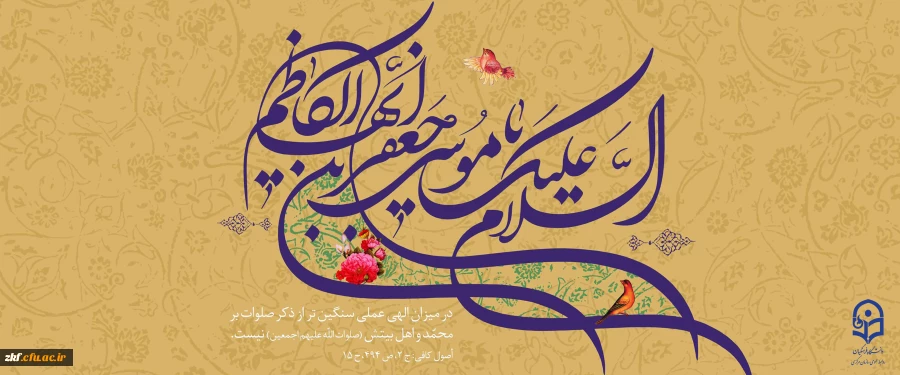 السلام علیک یا موسی بن جعفر ایها الکاظم
در میزان الهی عملی سنگین تر از ذکر صلوات بر
محمّد و اهل بیتش (صلوات الله علیهم اجمعین) نیست.
اصول کافی: خ ۲، ص ۴۹۴، ح ۱۵
دانشگاه فرهنگیان
zkf.cfu.ac.ir